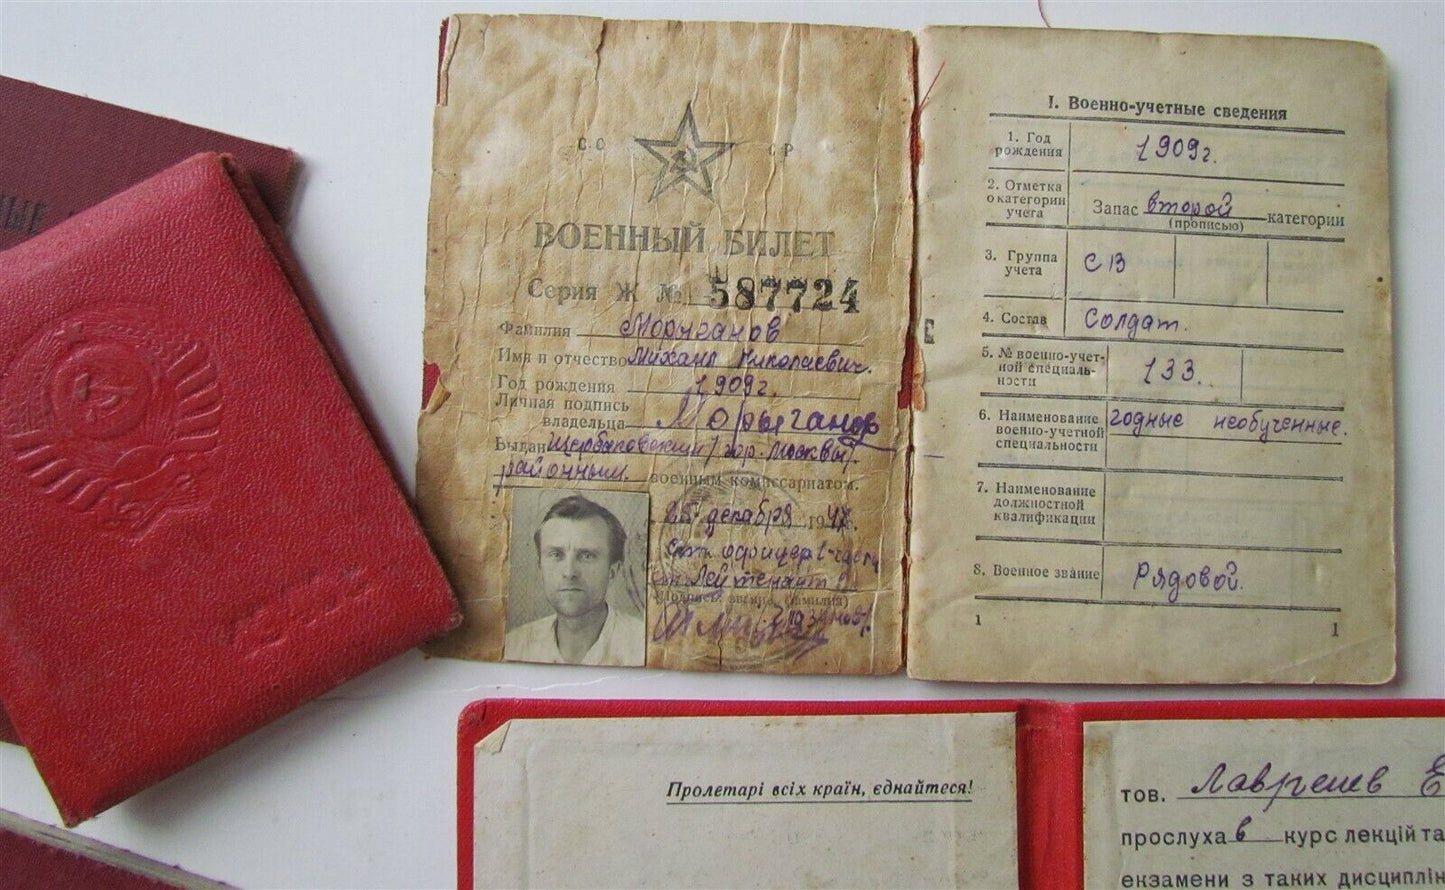 НЫЕ
СС СР
ВОЕННЫЙ БИЛЕТ
Серия Ж № 587724
Фамилия Морыганов
Имя и отчество Михаил Николаевич.
Год рождения 1909г.
Личная подпись
владельца Морыганов
Выдан Щербаковским гор. Москвы
районным. военным комиссариатом.
25 декабря 1947г.
Ст. офицер 1 части
ст. Лейтенант
(Подпись, звание, фамилия)
I. Военно-учетные сведения
1. Год
рождения 1909г.
2. Отметка
о категории
учета Запас второй категории
(прописью)
3. Группа
учета СВ
4. Состав Солдат.
5. № военно-учет-
ной специаль-
ности 133.
6. Наименование
военно-учетной
специальности годные необученные.
7. Наименование
должностной
квалификации
8. Военное звание Рядовой.
1 1
Пролетарі всіх країн, єднайтеся!
тов. Е
прослухав курс лекцій та
екзамени з таких дисциплін